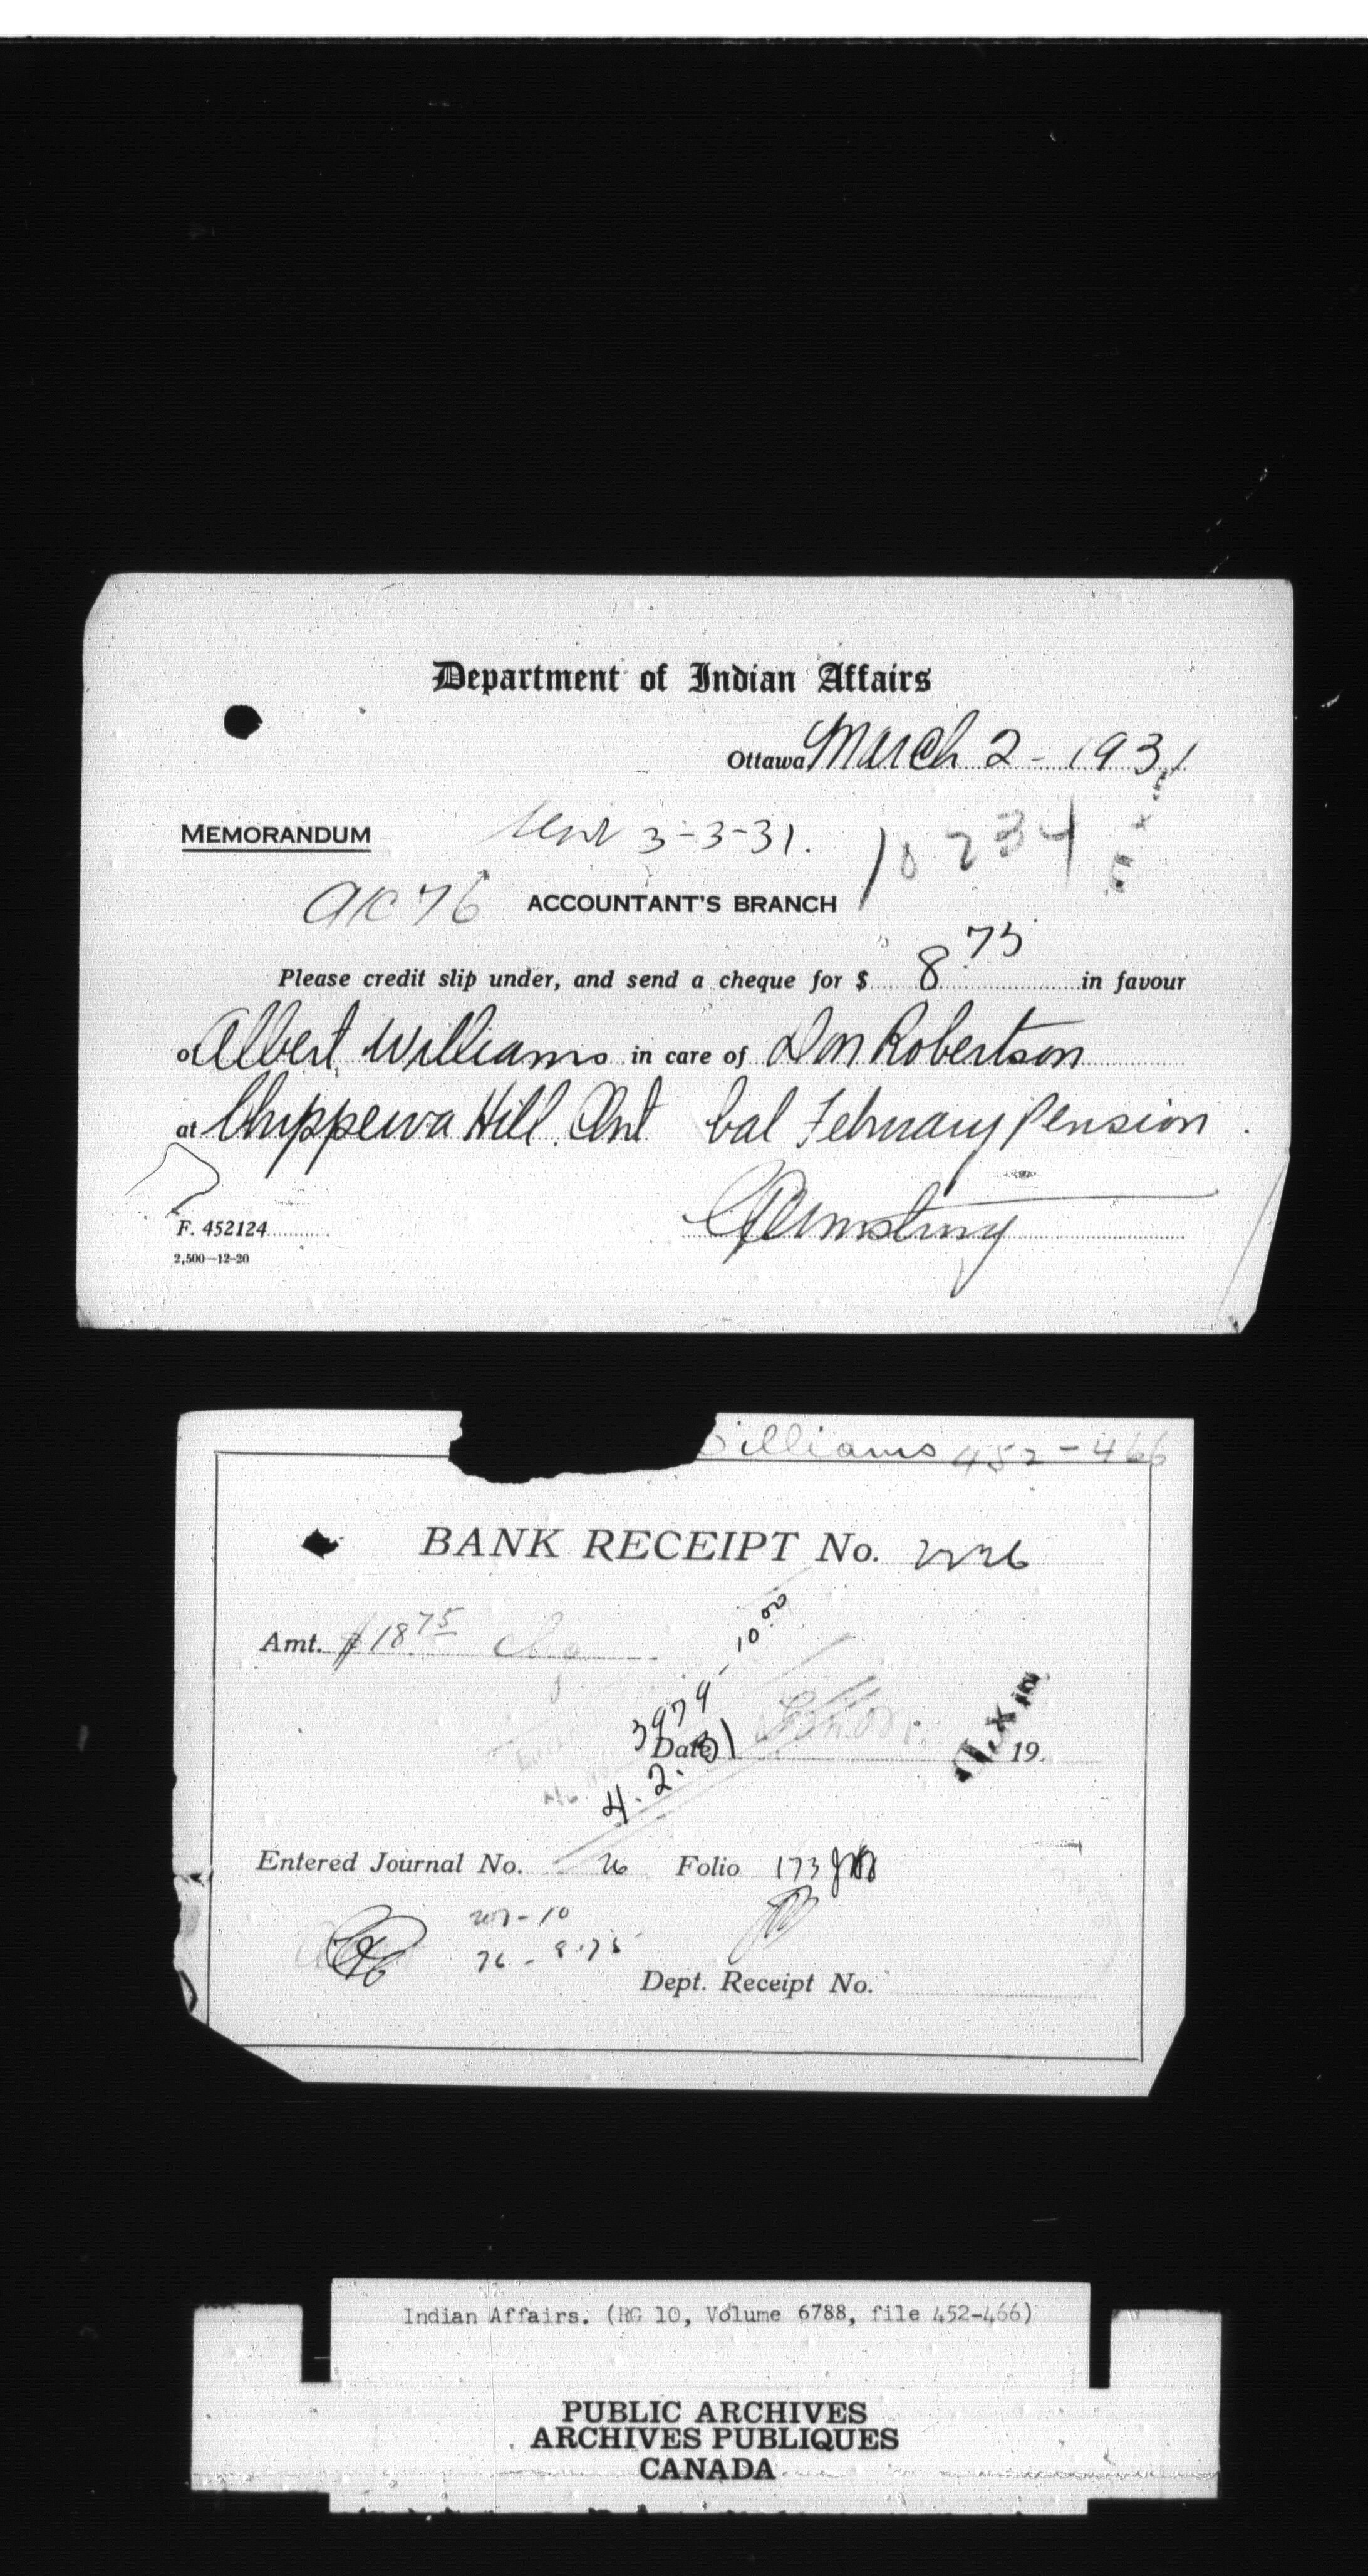 Department of Indian Affairs
Ottawa March 2 - 1931
MEMORANDUM
Sent 3-3-31. 10234
a/c 76 ACCOUNTANT'S BRANCH
Please credit slip under, and send a cheque for $ 8.75 in favour
of Albert Williams in care of Don Robertson
at Chippewa Hill. Ont bal February Pension.
Armstrong
F. 452124
2,500—12-20
illiams 452-466
BANK RECEIPT No. 2226
Amt. $18 75 Chq
3979 - 10.00
Date 19
4.2.31
Entered Journal No. 26 Folio 173
207-10
76-8.75
Dept. Receipt No.
Indian Affairs. (RG 10, Volume 6788, file 452-466)
PUBLIC ARCHIVES
ARCHIVES PUBLIQUES
CANADA